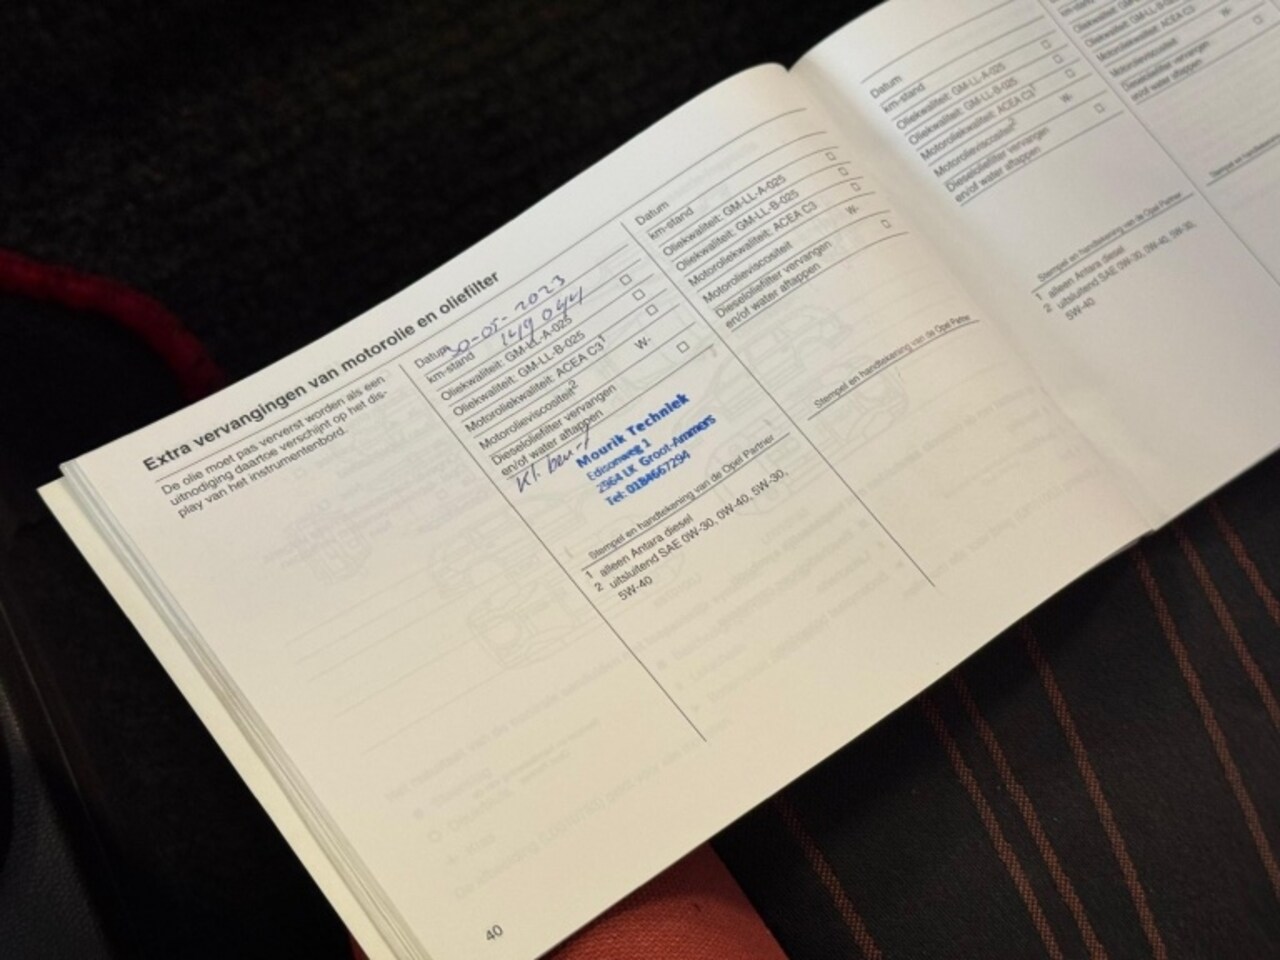 Extra vervangingen van motorolie en oliefilter
De olie moet pas ververst worden als een
uitnodiging daartoe verschijnt op het dis-
play van het instrumentenbord.
Datum 30-05-2023
km-stand 149 044
Oliekwaliteit: GM-LL-A-025
Oliekwaliteit: GM-LL-B-025
Motoroliekwaliteit: ACEA C3¹
Motorolieviscositeit² W-
Dieseloliefilter vervangen
en/of water aftappen
Kl.
Mourik Techniek
Edisonweg 1
2964 LK Groot-Ammers
Tel: 0184667294
Stempel en handtekening van de Opel Partner
1 alleen Antara diesel
2 uitsluitend SAE 0W-30, 0W-40, 5W-30,
5W-40
Datum
km-stand
Oliekwaliteit: GM-LL-A-025
Oliekwaliteit: GM-LL-B-025
Motoroliekwaliteit: ACEA C3
Motorolieviscositeit W-
Dieseloliefilter vervangen
en/of water aftappen
Stempel en handtekening van de Opel Partner
40
Datum
km-stand
Oliekwaliteit: GM-LL-A-025
Oliekwaliteit: GM-LL-B-025
Motoroliekwaliteit: ACEA C3¹
Motorolieviscositeit² W-
Dieseloliefilter vervangen
en/of water aftappen
Stempel en handtekening van de Opel Partner
1 alleen Antara diesel
2 uitsluitend SAE 0W-30, 0W-40, 5W-30,
5W-40
Oliekwaliteit: GM-LL-B-025
Motoroliekwaliteit: ACEA C3
Motorolieviscositeit W-
Dieseloliefilter vervangen
en/of water aftappen
Stempel en